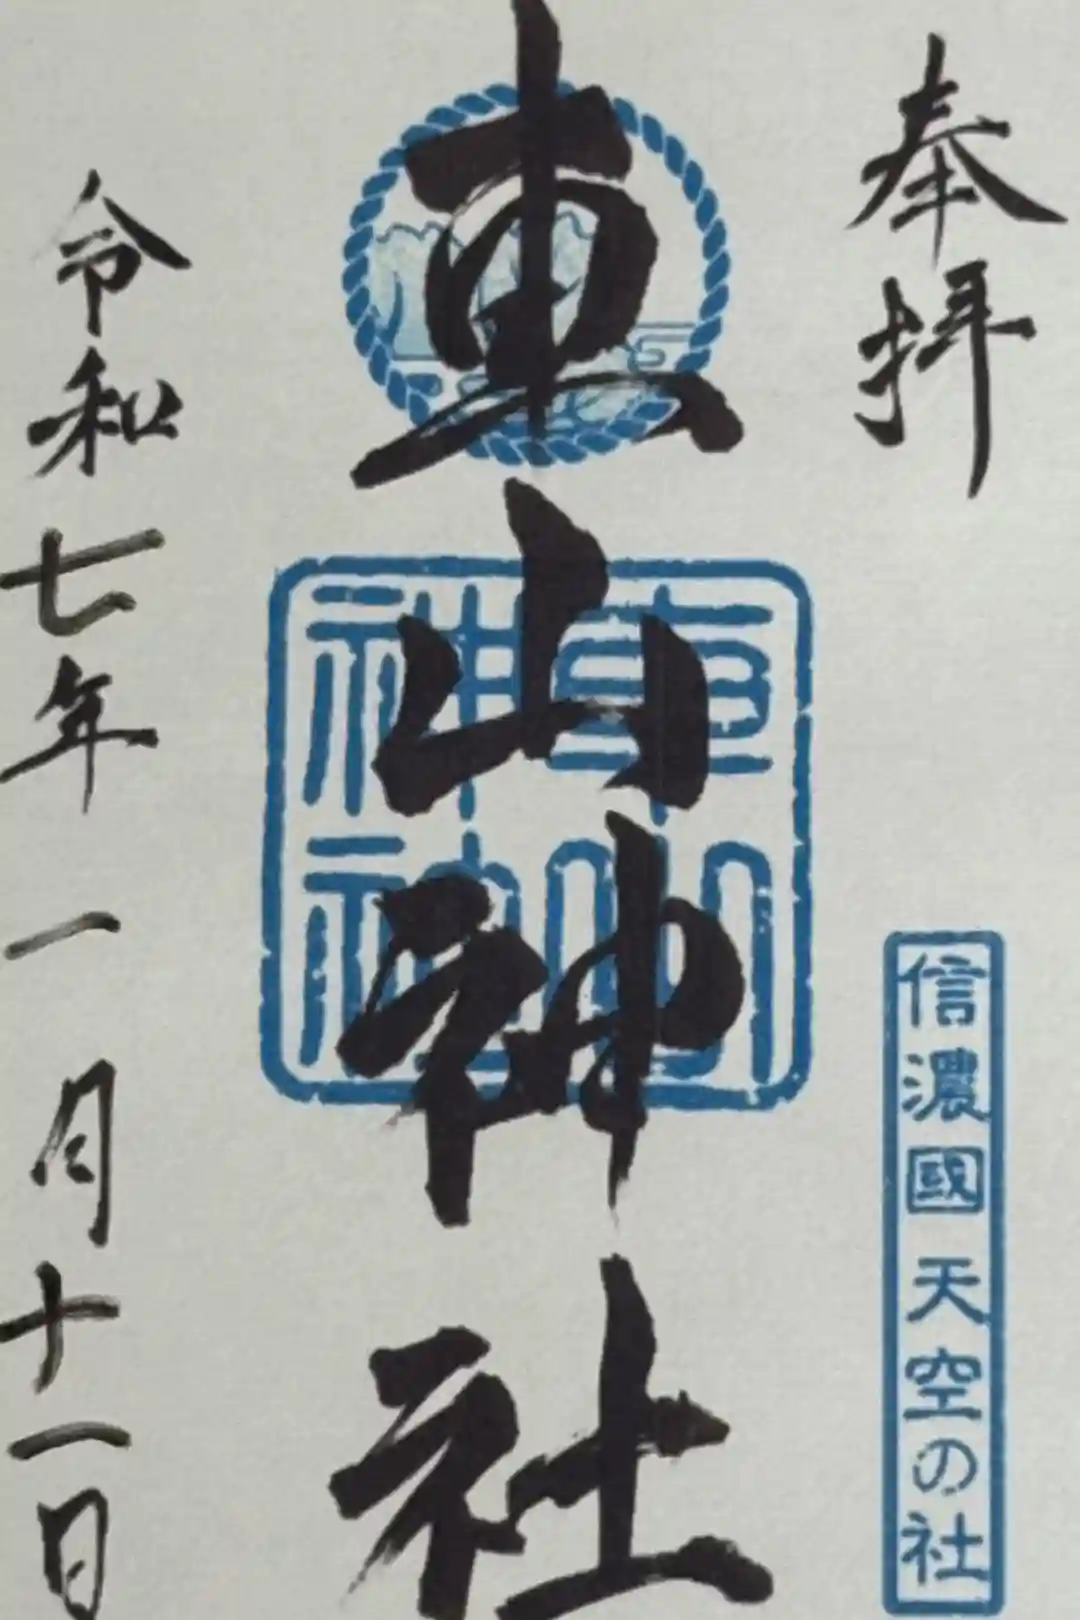 奉拝
信濃國天空の社
車山神社
車山
神社
令和七年一月十一日